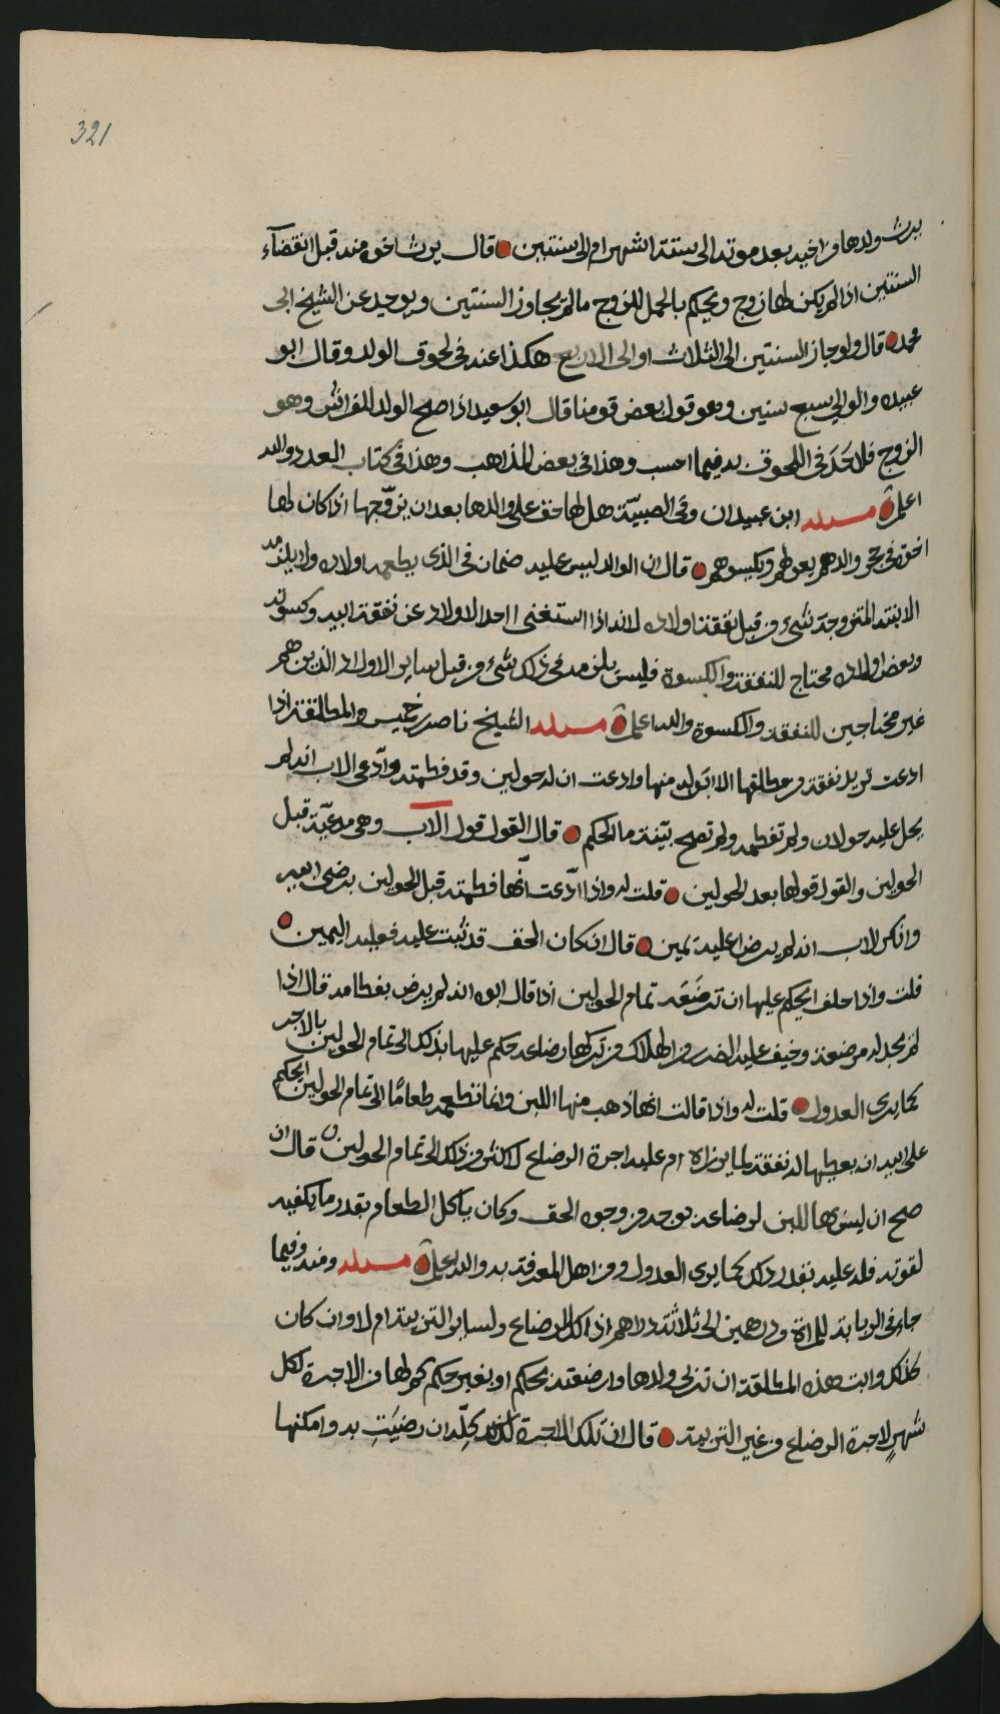 321
يرث ولدها من اخيه بعد موته الى ستة اشهر ام الى سنتين قال يرث اخوه منه قبل انقضآء
السنتين اذا لم يكن لها زوج ويحكم بالحمل للزوج ما لم يجاوز السنتين ويوجد عن الشيخ ابى
محمد قال ولو جاز السنتين الى الثلاث او الى الاربع هكذا عندى في لحوق الولد وقال ابو
عبيده والوالى سبع سنين وهو قول بعض قومنا قال ابو سعيد اذا صلح الولد للفراش وهو
الزوج فلا حَدَ فى اللحوق به فيما احسب وهذا فى بعض المذاهب وهذا فى كتاب العدد والله
اعلم مسئله ابن عبيدان وفى الصبيّة هل لها حق على والدها بعد ان يزوّجها اذا كان لها
اخوة فى حجر والدهم يعولهم ويكسوهم قال ان الوالد ليس عليه ضمان فى الذى يطعمه اولاده ولا يلزمه
لابنته المتزوجة شىء من قبل نفقة اولاده لانه اذا استغنى احد الاولاد عن نفقة ابيه وكسوته
وبعض اولاده محتاج للنفقة والكسوة فليس يلزمه فى ذلك شىء من قبل سائر الاولاد الذين هم
غير محتاجين للنفقة والكسوة والله اعلم مسئله الشيخ ناصر بن خميس والمطلقة اذا
ادعت تريد نفقة من مطلقها لابن له منها وادعت ان له حولين وقد فطمته وادّعى الاب انه لم
يحل عليه حولان ولم تفطمه ولم تصح بيّنة ما الحكم قال القول قول الاب وهى مدعيّة قبل
الحولين والقول قولها بعد الحولين قلت له واذا ادّعت انّها فطمته قبل الحولين برضى ابيه
وانكر الاب انه لم يرض اعليه يمين قال ان كان الحق قد ثبت عليه فعليه اليمين
قلت واذا حلف ايحكم عليها ان ترضَعَه تمام الحولين اذا قال ابوه انه لم يرض بفطامه قال اذا
لم يجد له مرضعة وخيف عليه الضرر من الهلاك من تركها رضاعه حكم عليها بذلك الى تمام الحولين بالاجر
كما يرى العدول قلت له واذا قالت انها ذهب منها اللبن وانما تطعمه طعامًا الى تمام الحولين ايحكم
على ابيه ان يعطيها له نفقة لما يرزاه ام عليه اجرة الرضاع لا اكثر من ذلك الى تمام الحولين قال ان
صح ان ليس بها لبن لرضاعه بوجه من وجوه الحق وكان ياكل الطعام بقدر ما يكفيه
لقوته فله عليه بقدر ذلك كما يرى العدول من اهل المعرفة به والله اعلم مسئله ومنه وفيما
جاء فى الربابة للمراة درهمين الى ثلاثة دراهم اذا كل الرضاع ولسائر التربية ام لا وان كان
كذلك وابت هذه المطلقة ان تربى ولدها وارضعته بحكم او بغير حكم كم لها من الاجرة لكل
شهرٍ لاجرة الرضاع من غير التربية قال ان تلك الاجرة لذلك كلّه ان رضيَت به وامكنها